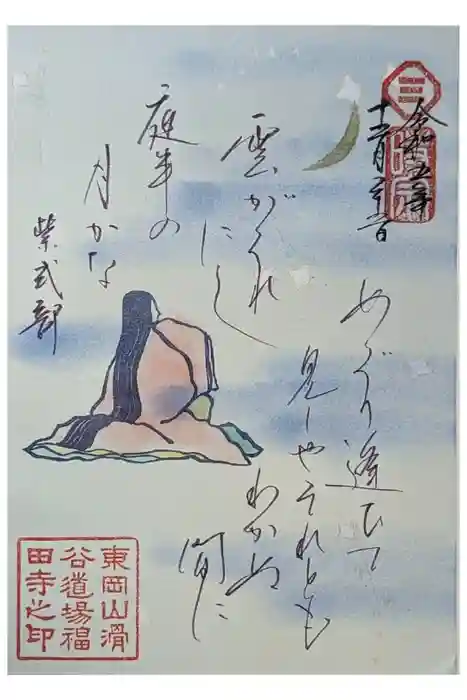 令和五年
めぐり逢ひて
見しやそれとも
わかぬ
間に
雲がくれ
にし
夜半の
月かな
紫式部
時宗
東岡山滑
谷道場福
田寺之印